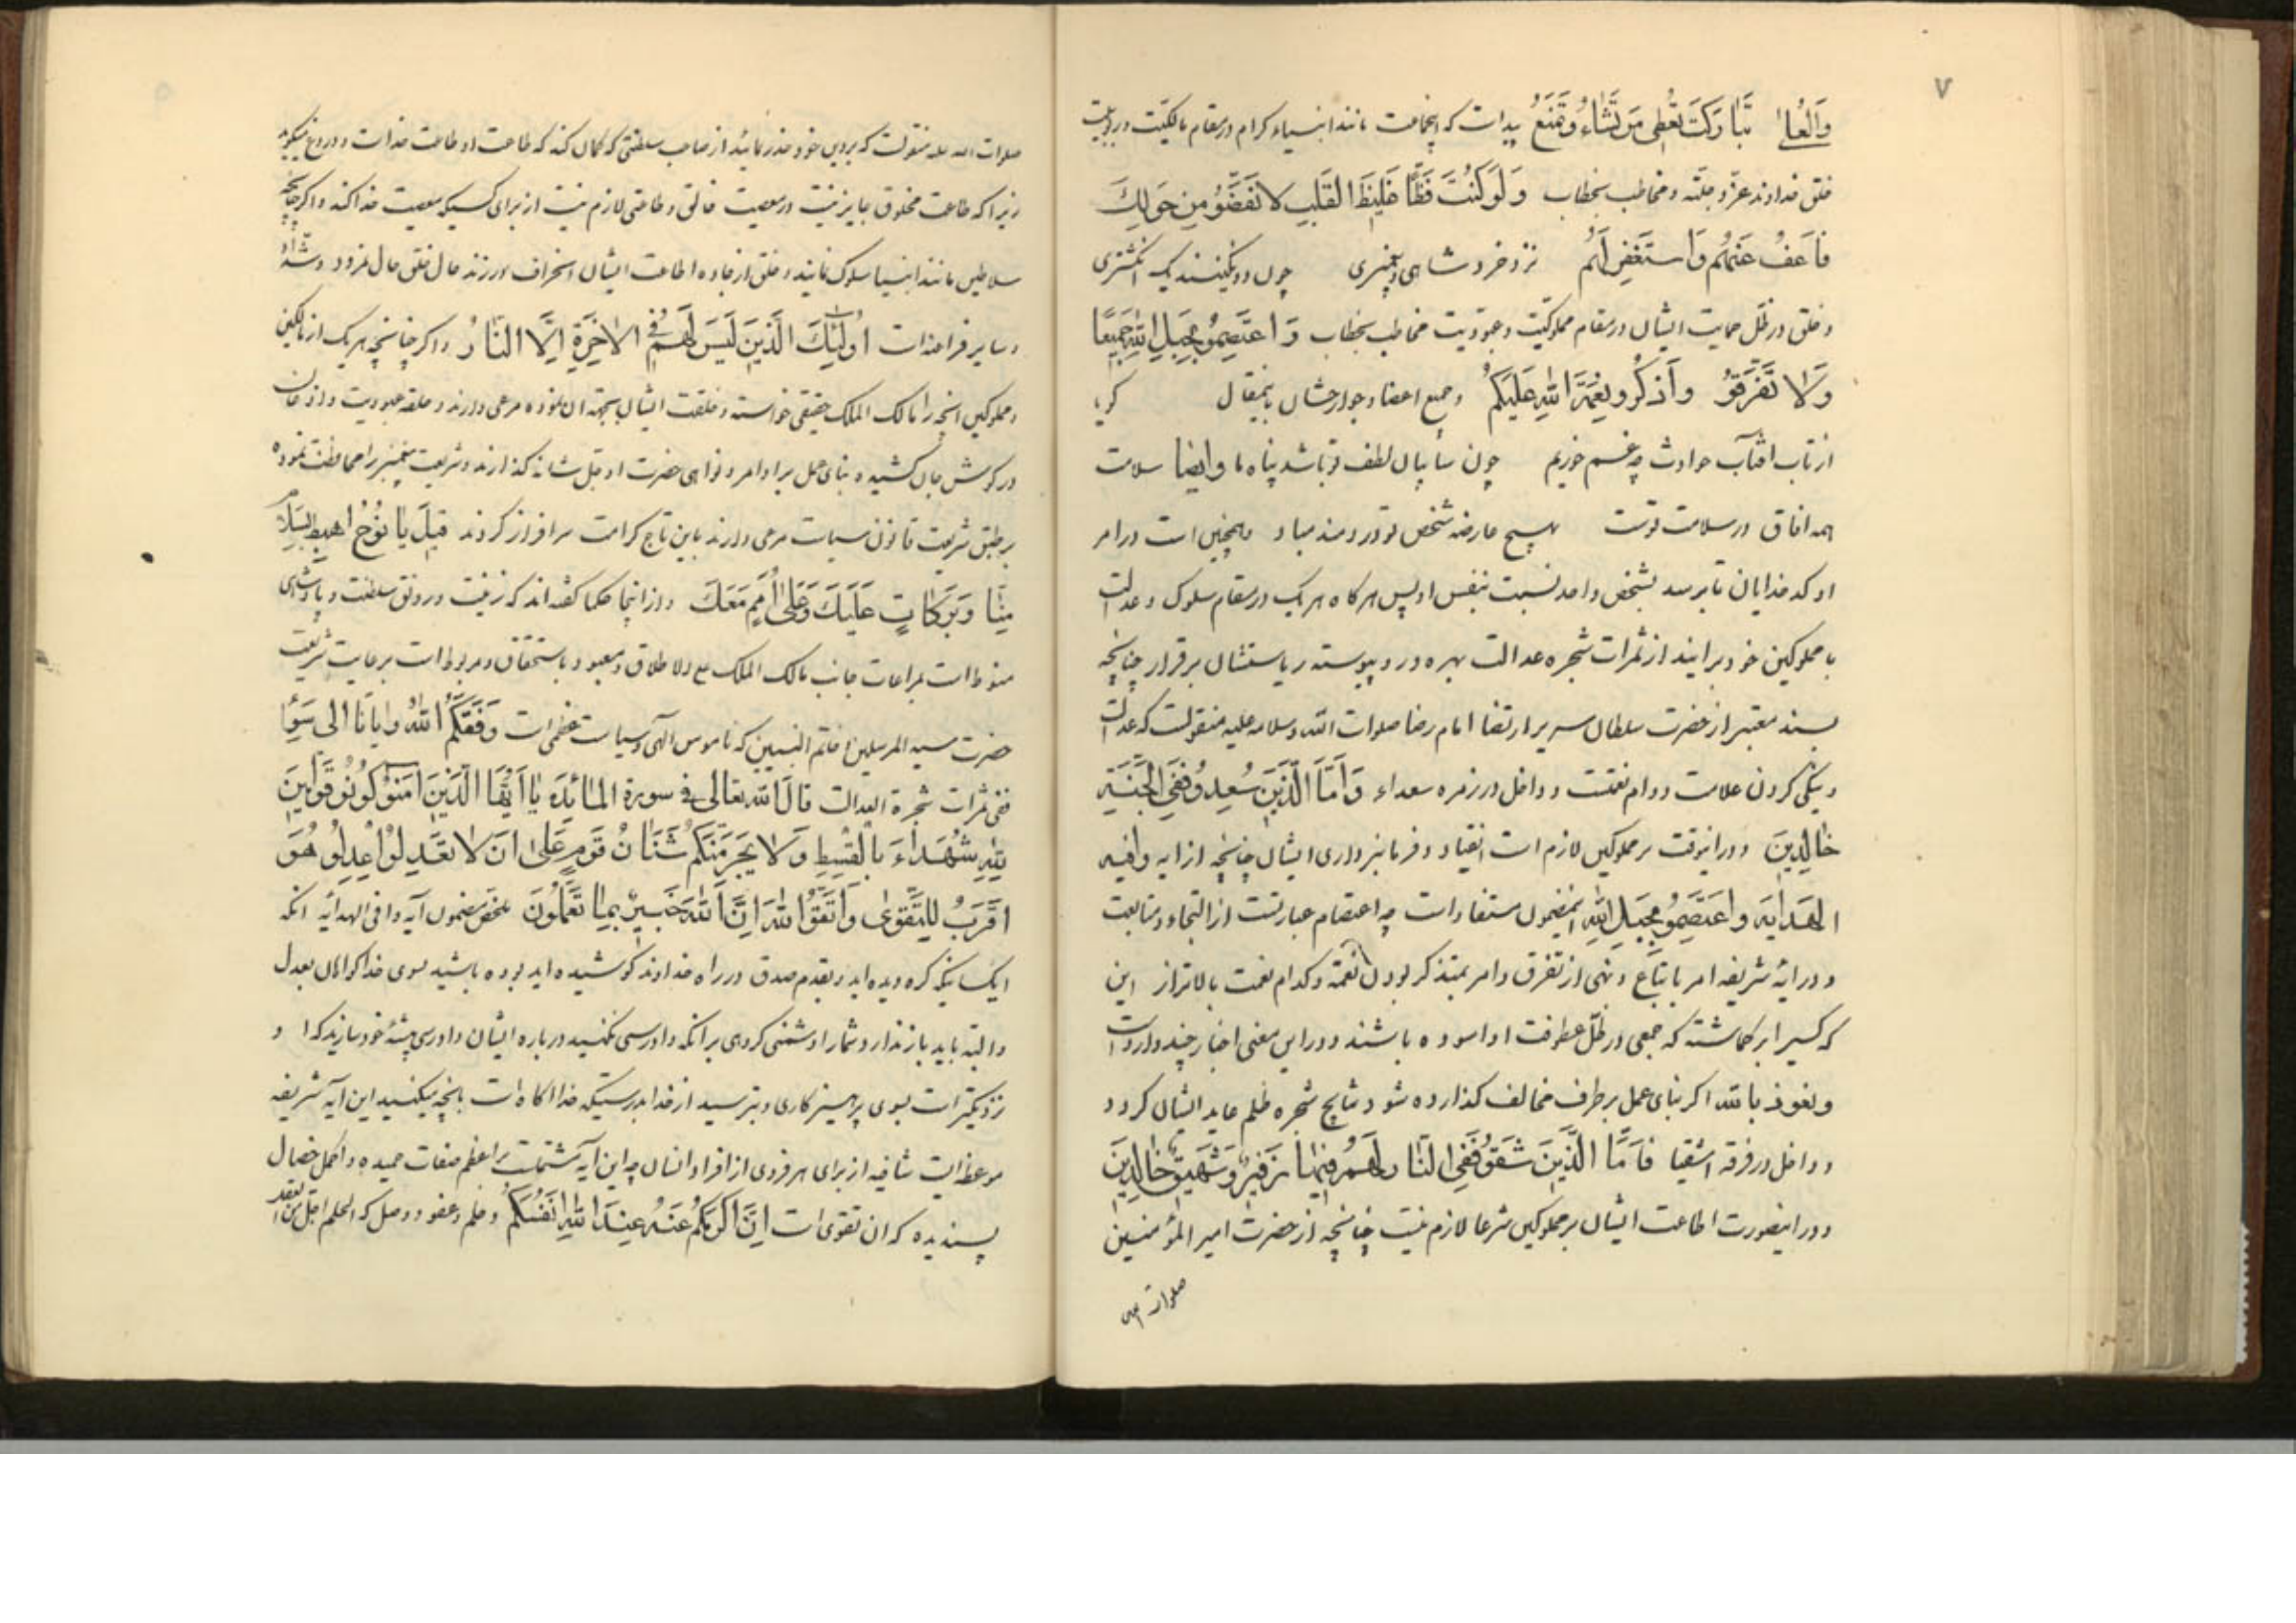 ۷
والعلا تباركت تعطی من تشاء و تمنع پیداست که اینجماعت مانند انبیاء کرام در مقام مالکیت و ربوبیت
خلق خداوند عز و جلند و مخاطب بخطاب وَلَوْ كُنْتَ فَظًّا غَلِيظَ الْقَلْبِ لَانْفَضُّوا مِنْ حَوْلِكَ
فَاعْفُ عَنْهُمْ وَاسْتَغْفِرْ لَهُمْ نزد خرد شاهی و پیغمبری چون دو نگینند یک انگشتری
و خلق در ظل حمایت ایشان در مقام مملوکیت و عبودیت مخاطب بخطاب وَاعْتَصِمُو بِحَبْلِ اللهِ جَمِيعًا
وَلَا تَفَرَّقُو وَاذْكُرُو نِعْمَةَ اللهِ عَلَيْكُمْ و جمیع اعضا و جوارحشان باینمقال گویا
از تاب افتاب حوادث چه غم خوریم چون سایبان لطف تو باشد پناه ما وایضا سلامت
همه افاق در سلامت توست بهیچ عارضه شخص تو دردمند مباد و همچنین است در امر
او کدخدایان تا برسد بشخص واحد نسبت بنفس او پس هرگاه هر یک در مقام سلوک و عدالت
با مملوکین خود برایند از ثمرات شجره عدالت بهره ور و پیوسته ریاستشان برقرار چنانچه
بسند معتبر از حضرت سلطان سریر ارتضا امام رضا صلوات الله و سلامه علیه منقولست که عدالت
و نیکی کردن علامت دوام نعمتست و داخل در زمره سعداء وَأَمَّا الَّذِينَ سُعِدُو فَفِي الْجَنَّةِ
خَالِدِينَ و در اینوقت بر مملوکین لازم است انقیاد و فرمانبرداری ایشان چنانچه از ایه وافیه
الهدایه واعتصمو بحبل الله اینمضمون مستفاد است چه اعتصام عبارتست از التجاء و متابعت
و در ایه شریفه امر باتباع و نهی از تفرق و امر بتذکر بودن نعمة و کدام نعمت بالاتر از این
که کسیرا برگماشته که جمعی در ظل عطوفت او اسوده باشند و در این معنی اخبار چند وارد است
و نعوذ بالله اگر بنای عمل بر طرف مخالف گذارده شود نتایج شجره ظلم عاید ایشان گردد
و داخل در فرقه اشقیا فَأَمَّا الَّذِينَ شَقُو فَفِي النَّارِ لَهُمْ فِيهَا زَفِيرٌ وَشَهِيقٌ خَالِدِينَ
و در اینصورت اطاعت ایشان بر مملوکین شرعا لازم نیست چنانچه از حضرت امیر المؤمنین
صلوات الله
صلوات الله علیه منقولست که بر دین خود حذر نمائید از صاحب سلطنتی که گمان کند که طاعت او طاعت خداست و دروغ میگوید
زیرا که طاعت مخلوق جایز نیست در معصیت خالق و طاعتی لازم نیست از برای کسیکه معصیت خدا کند و اگر چنانچه
سلاطین مانند انبیا سلوک نمایند و خلق از جاده اطاعت ایشان انحراف ورزند حال خلق حال نمرود و شداد
و سایر فراعنه است أُولَئِكَ الَّذِينَ لَيْسَ لَهُمْ فِي الْآخِرَةِ إِلَّا النَّارُ و اگر چنانچه هر یک از مالکین
و مملوکین انچه را مالک الملک حقیقی خواسته و خلقت ایشان بجهة ان نموده مرعی دارند و حلقه عبودیت و اذعان
در گوش جان کشیده بنای عمل بر اوامر و نواهی حضرت او جل شانه گذارند و شریعت پیغمبر را محافظت نموده
بر طبق شریعت قانون سیاست مرعی دارند باین تاج کرامت سرافراز گردند قِيلَ يَا نُوحُ اهْبِطْ بِسَلَامٍ
مِنَّا وَبَرَكَاتٍ عَلَيْكَ وَعَلَى أُمَمٍ مِمَّنْ مَعَكَ و از اینجا حکما گفته اند که زینت و رونق سلطنت و پادشاهی
منوط است بمراعات جانب مالک الملک علی الاطلاق و معبود باستحقاق و مربوط است برعایت شریعت
حضرت سید المرسلین خاتم النبیین که ناموس الهی و سیاست عظمی است وفقكم الله وايانا الى سوء
ففی ثمرات شجرة العدالت قال الله تعالى فی سورة المائدة يَا أَيُّهَا الَّذِينَ آمَنُو كُونُو قَوَّامِينَ
لِلَّهِ شُهَدَاءَ بِالْقِسْطِ وَلَا يَجْرِمَنَّكُمْ شَنَآنُ قَوْمٍ عَلَى أَنْ لَا تَعْدِلُوا اعْدِلُو هُوَ
أَقْرَبُ لِلتَّقْوَى وَاتَّقُوا اللهَ إِنَّ اللهَ خَبِيرٌ بِمَا تَعْمَلُونَ ملخص مضمون آیه وافی الهدایه انکه
ایکسانیکه گرویده اید و بقدم صدق در راه خداوند کوشیده اید بوده باشید بسوی خدا گواهان بعدل
و البته باید باز ندارد شما را دشمنی گروهی بر انکه دادرسی نکنید درباره ایشان دادرسی پیشه خود سازید که ا و
نزدیکتر است بسوی پرهیزکاری و بترسید از خدا بدرستیکه خدا اگاه است بانچه میکنید این ایه شریفه
موعظه ایست شافیه از برای هر فردی از افراد انسان چه این آیه مشتمل است بر اعظم صفات حمیده و اکمل خصال
پسندیده که ان تقوی است ان اكرمكم عند الله اتقیكم و حلم و عفو و وصل که الحلم اجل من العقل